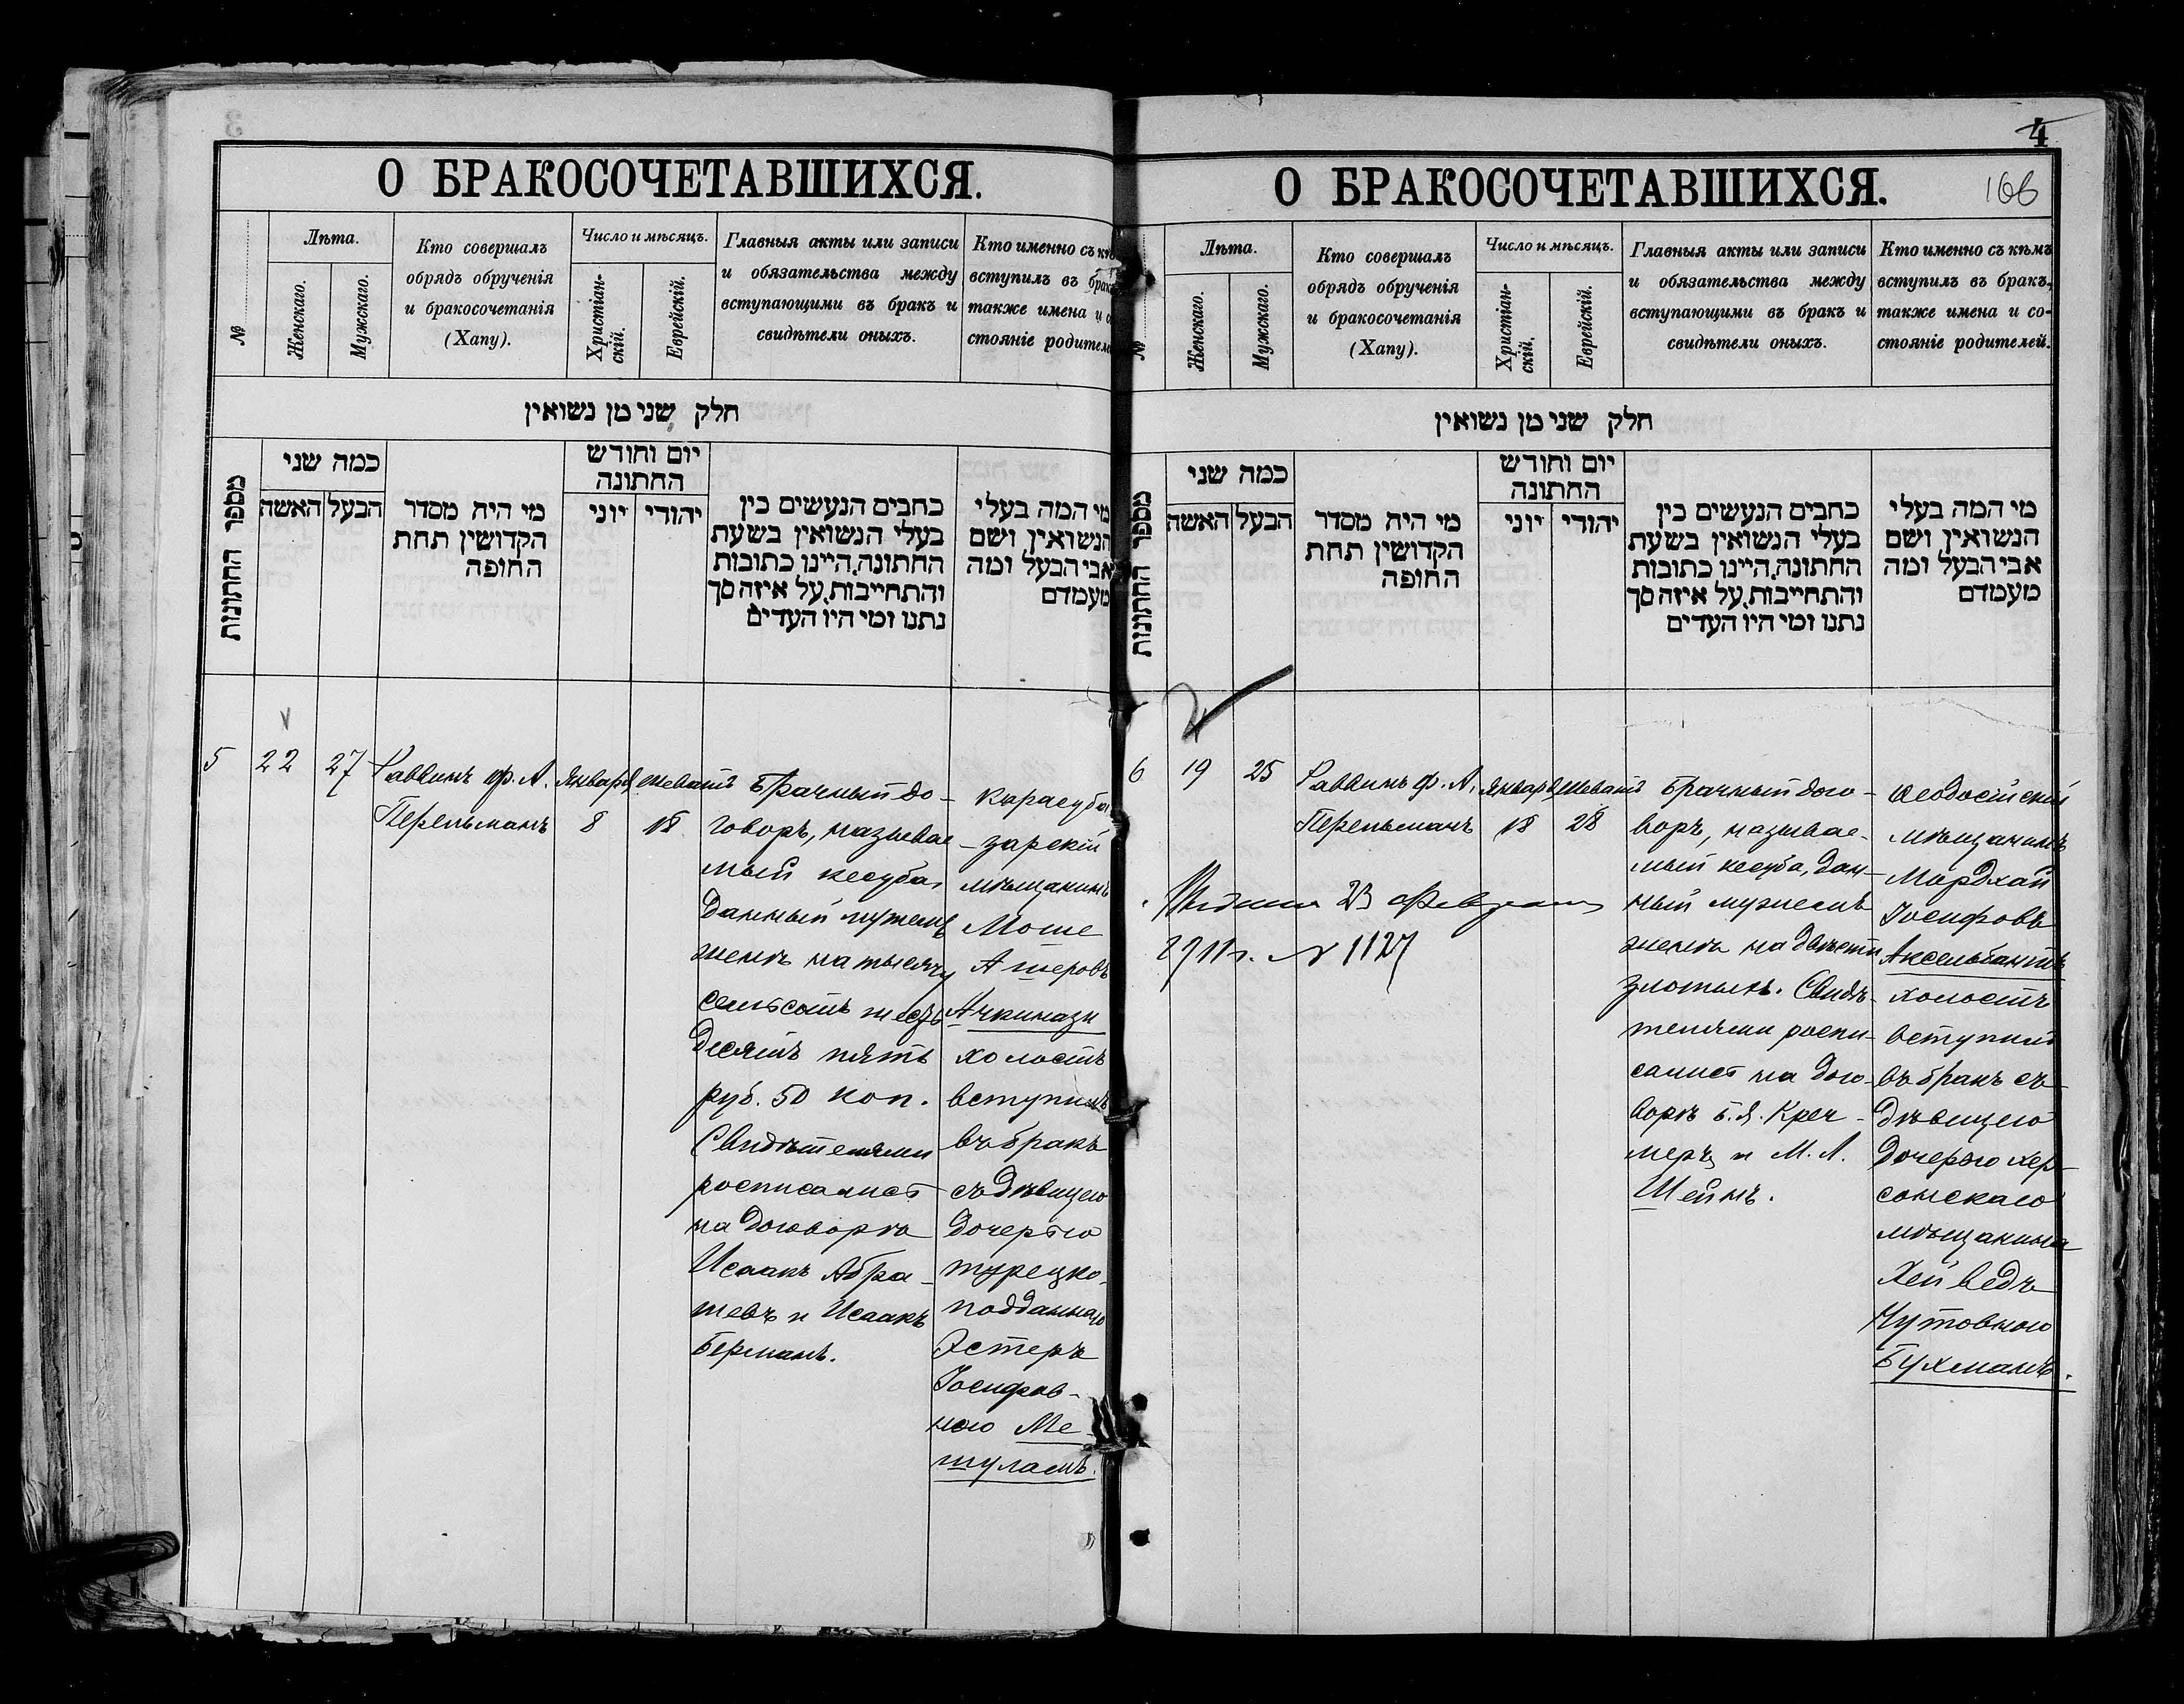 О БРАКОСОЧЕТАВШИХСЯ.
№
Лѣта.
Женскаго.
Мужскаго.
Кто совершалъ
обрядъ обрученія
и бракосочетанія
(Хапу).
Число и мѣсяцъ.
Христіан-
скій.
Еврейскій.
Главныя акты или записи
и обязательства между
вступающими въ бракъ и
свидѣтели оныхъ.
Кто именно съ
вступилъ въ
также имена и
стояніе
חלק שני מן נשואין
מספר החתונות
כמה שני
האשה
הבעל
מי היה מסדר
הקדושין תחת
החופה
יום וחודש
החתונה
יוני
יהודי
כתבים הנעשים בין
בעלי הנשואין בשעת
החתונה, היינו כתובות
והתחייבות, על איזה סך
נתנו ומי היו העדים
מי המה בעלי
הנשואין ושם
אבי הבעל ומה
מעמדם
5
22
27
Раввинъ Ф. А.
Перельманъ
Январь
8
шеватъ
18
Брачный до-
говоръ, называе-
мый кесуба,
данный мужемъ
женѣ на тысячу
семьсотъ шесть
десятъ пять
руб. 50 коп.
Свидѣтелями
росписались
на договорѣ
Исаакъ Абра-
шевъ и Исаакъ
Берманъ.
Карасуба
зарскій
мѣщанинъ
Моше
Ашеровъ
Ачкинази
холостъ
вступилъ
въ бракъ
съ дѣвицею
дочерью
турецко-
подданнаго
Эстеръ
Іосифов-
ною Ме-
шуламъ.
4
О БРАКОСОЧЕТАВШИХСЯ.
166
№
Лѣта.
Женскаго.
Мужскаго.
Кто совершалъ
обрядъ обрученія
и бракосочетанія
(Хапу).
Число и мѣсяцъ.
Христіан-
скій.
Еврейскій.
Главныя акты или записи
и обязательства между
вступающими въ бракъ и
свидѣтели оныхъ.
Кто именно съ кѣмъ
вступилъ въ бракъ,
также имена и со-
стояніе родителей.
חלק שני מן נשואין
מספר החתונות
כמה שני
האשה
הבעל
מי היה מסדר
הקדושין תחת
החופה
יום וחודש
החתונה
יוני
יהודי
כתבים הנעשים בין
בעלי הנשואין בשעת
החתונה, היינו כתובות
והתחייבות, על איזה סך
נתנו ומי היו העדים
מי המה בעלי
הנשואין ושם
אבי הבעל ומה
מעמדם
6
19
25
Раввинъ Ф. А.
Перельманъ
Январь
18
шеватъ
28
Брачный дого-
воръ, называе-
мый кесуба, дан-
ный мужемъ
женѣ на двѣсти
злотыхъ. Свидѣ-
телями роспи-
сались на дого-
ворѣ Б. Я. Крем-
меръ и М. Л.
Шейнъ.
Феодосійскій
мѣщанинъ
Мордхай
Іосифовъ
Аксельбантъ
холостъ
вступилъ
въ бракъ съ
дѣвицею
дочерью хер-
сонскаго
мѣщанина
Хей ведъ
Нутовною
Бухманъ.
23 Февраля
1911 г. № 1127